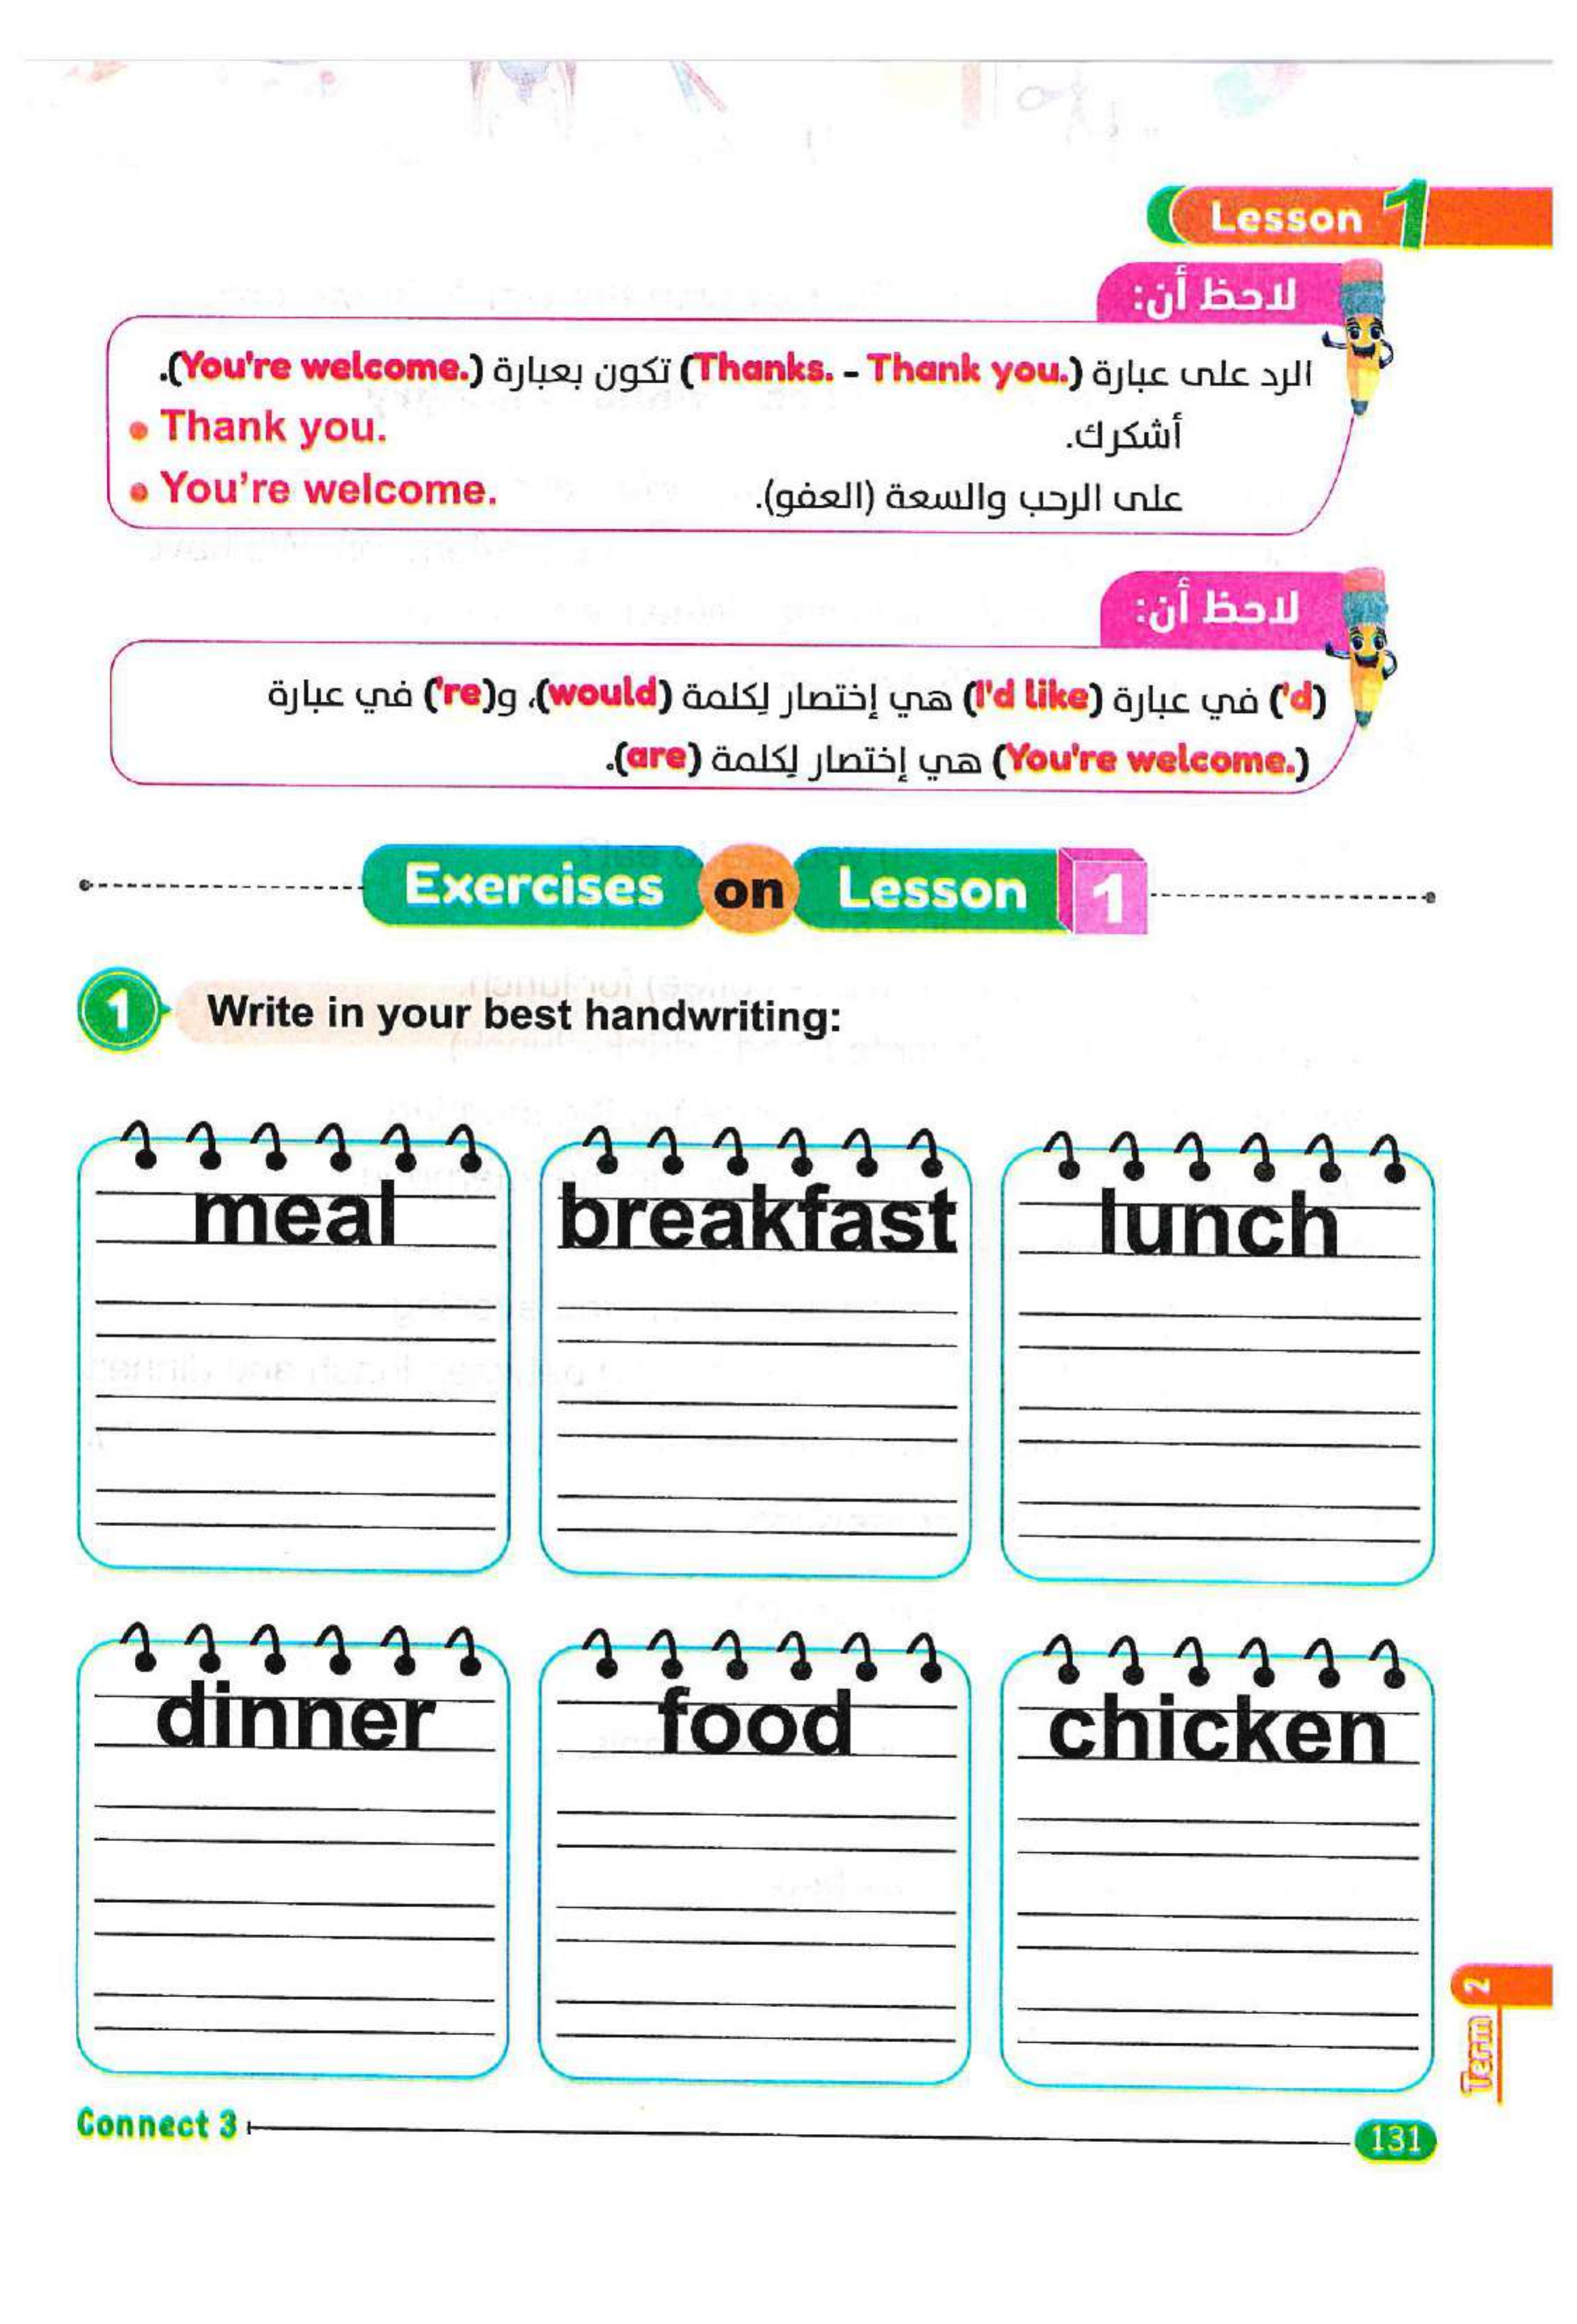 Lesson 1
لاحظ أن:
الرد على عبارة (Thanks. - Thank you.) تكون بعبارة (You're welcome.).
• Thank you. أشكرك.
• You're welcome. على الرحب والسعة (العفو).
لاحظ أن:
('d) في عبارة (I'd like) هي إختصار لِكلمة (would)، و('re) في عبارة
(You're welcome.) هي إختصار لِكلمة (are).
Exercises on Lesson 1
1 Write in your best handwriting:
meal breakfast lunch
dinner food chicken
Term 2
Connect 3 131